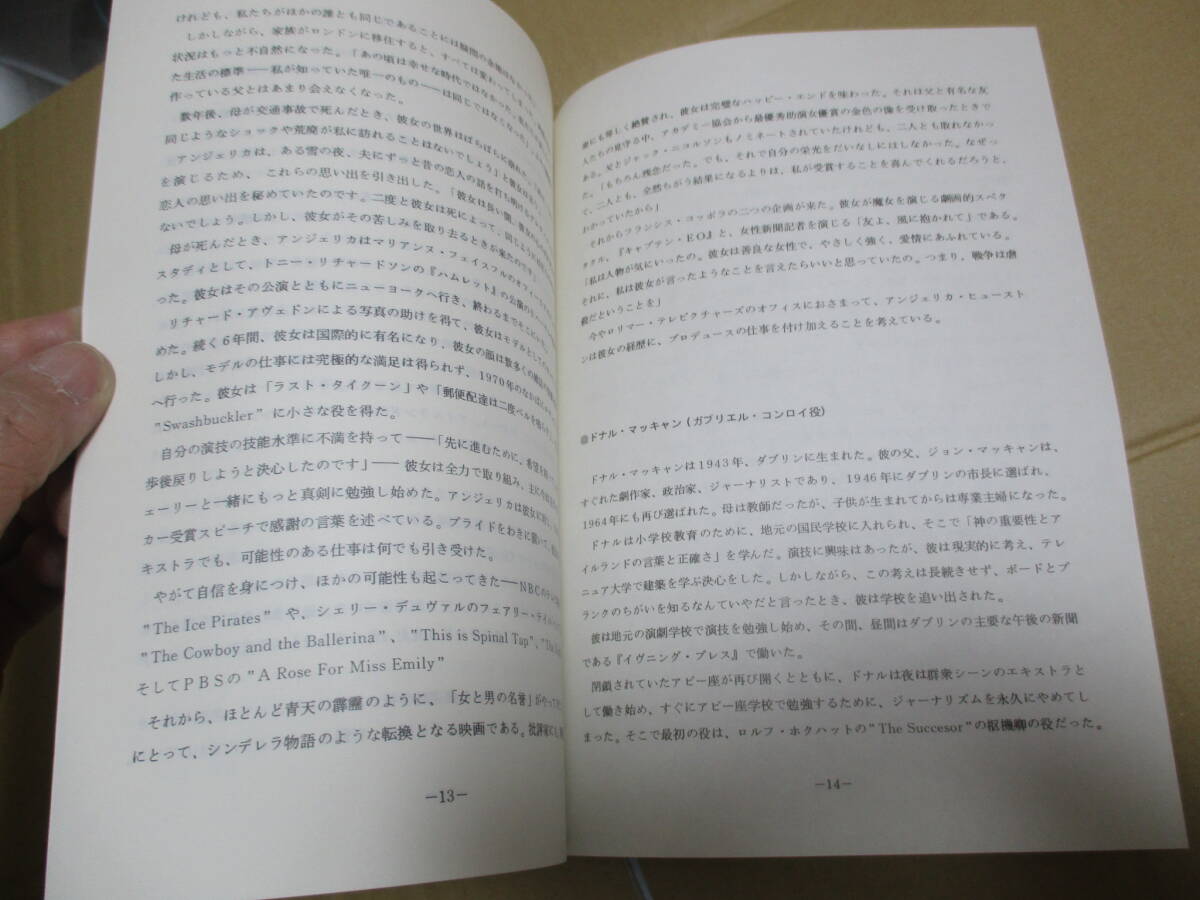 けれども、私たちがほかの誰とも同じであることには疑問の余地は
しかしながら、家族がロンドンに移住すると、すべては変わってしま
状況はもっと不自然になった。「あの頃は幸せな時代ではなかった。
た生活の標準──私が知っていた唯一のもの──は同じではなくなった。」
作っている父とはあまり会えなくなった。
数年後、母が交通事故で死んだとき、彼女の世界はばらばらに
同じようなショックや荒廃が私に訪れることはないでしょう」と彼女は
アンジェリカは、ある雪の夜、夫にずっと昔の恋人の話を打ち明ける
を演じるため、これらの思い出を引き出した。「彼女は長い間、
恋人の思い出を秘めていたのです。二度と彼女は死によって、同じような
ないでしょう。しかし、彼女がその苦しみを取り去るときが来たのです」
母が死んだとき、アンジェリカはマリアンヌ・フェイスフルのオフィーリア
スタディとして、トニー・リチャードソンの『ハムレット』の公演の
った。彼女はその公演とともにニューヨークへ行き、終わるまでそこに
リチャード・アヴェドンによる写真の助けを得て、彼女はモデルとして
めた。続く6年間、彼女は国際的に有名になり、彼女の顔は数多くの雑誌の
しかし、モデルの仕事には究極的な満足は得られず、1970年のなかばに
へ行った。彼女は「ラスト・タイクーン」や「郵便配達は二度ベルを鳴らす
"Swashbuckler" に小さな役を得た。
自分の演技の技能水準に不満を持って──「先に進むために、希望を持って
歩後戻りしようと決心したのです」── 彼女は全力で取り組み、主に
ェーリーと一緒にもっと真剣に勉強し始めた。アンジェリカは彼女に対し
カー受賞スピーチで感謝の言葉を述べている。プライドをわきに置いて、
キストラでも、可能性のある仕事は何でも引き受けた。
やがて自信を身につけ、ほかの可能性も起こってきた──NBCの
"The Ice Pirates" や、シェリー・デュヴァルのフェアリー・テイル
"The Cowboy and the Ballerina"、"This is Spinal Tap",
そしてPBSの "A Rose For Miss Emily"
それから、ほとんど青天の霹靂のように、「女と男の名誉」がやって
にとって、シンデレラ物語のような転換となる映画である。批評家にも、
─13─
衆にも等しく絶賛され、彼女は完璧なハッピー・エンドを味わった。それは父と有名な友
人たちの見守る中、アカデミー協会から最優秀助演女優賞の金色の像を受け取ったときで
ある。父とジャック・ニコルソンもノミネートされていたけれども、二人とも取れなかっ
た。「もちろん残念だった。でも、それで自分の栄光をだいなしにはしなかった。なぜっ
て、二人とも、全然ちがう結果になるよりは、私が受賞することを喜んでくれるだろうと、
わかっていたから」
それからフランシス・コッポラの二つの企画が来た。彼女が魔女を演じる劇画的スペク
タクル、『キャプテン・EO』と、女性新聞記者を演じる「友よ、風に抱かれて」である。
「私は人物が気にいったの。彼女は善良な女性で、やさしく強く、愛情にあふれている。
それに、私は彼女が言ったようなことを言えたらいいと思っていたの。つまり、戦争は虐
殺だということを」
今やロリマー・テレピクチャーズのオフィスにおさまって、アンジェリカ・ヒュースト
ンは彼女の経歴に、プロデュースの仕事を付け加えることを考えている。
◉ドナル・マッキャン(ガブリエル・コンロイ役)
ドナル・マッキャンは1943年、ダブリンに生まれた。彼の父、ジョン・マッキャンは、
すぐれた劇作家、政治家、ジャーナリストであり、1946年にダブリンの市長に選ばれ、
1964年にも再び選ばれた。母は教師だったが、子供が生まれてからは専業主婦になった。
ドナルは小学校教育のために、地元の国民学校に入れられ、そこで「神の重要性とア
イルランドの言葉と正確さ」を学んだ。演技に興味はあったが、彼は現実的に考え、テレ
ニュア大学で建築を学ぶ決心をした。しかしながら、この考えは長続きせず、ボードとプ
ランクのちがいを知るなんていやだと言ったとき、彼は学校を追い出された。
彼は地元の演劇学校で演技を勉強し始め、その間、昼間はダブリンの主要な午後の新聞
である『イヴニング・プレス』で働いた。
閉鎖されていたアビー座が再び開くとともに、ドナルは夜は群衆シーンのエキストラと
して働き始め、すぐにアビー座学校で勉強するために、ジャーナリズムを永久にやめてし
まった。そこで最初の役は、ロルフ・ホクハットの "The Succesor" の枢機卿の役だった。
─14─